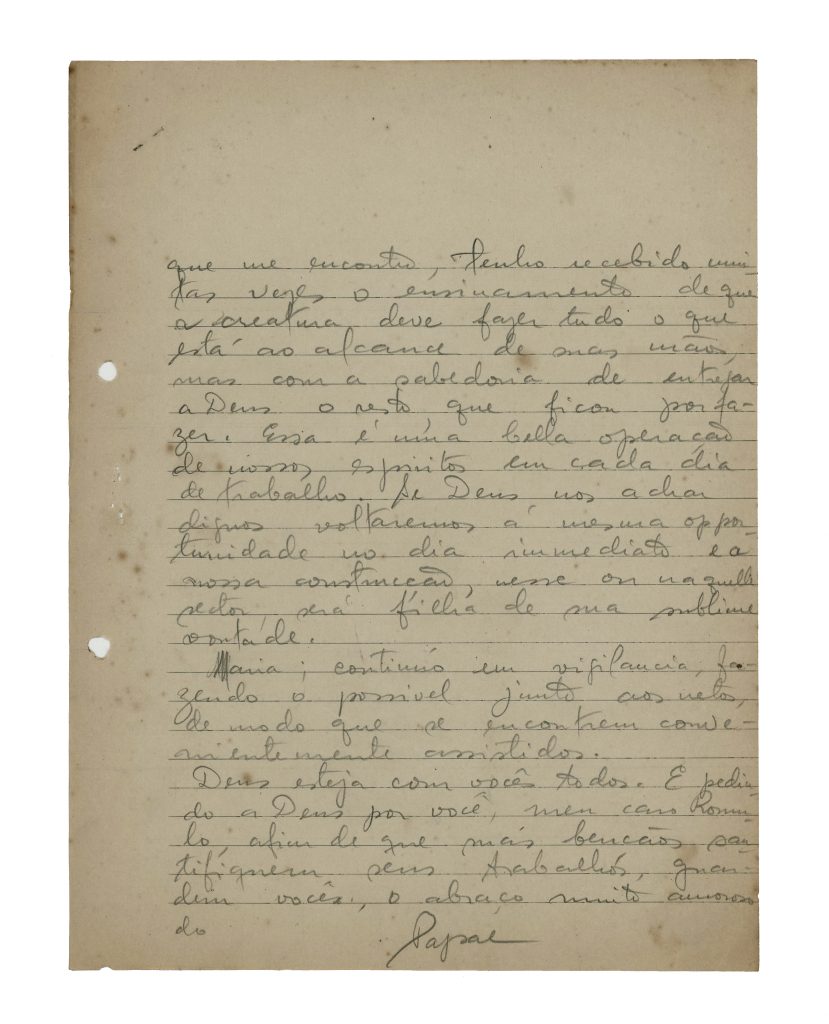 que me encontro, tenho recebido mui-
tas vezes o ensinamento de que
a creatura deve fazer tudo o que
está ao alcance de suas mãos,
mas com a sabedoria de entregar
a Deus o resto que ficou por fa-
zer. Essa é uma bella operação
de nossos espiritos em cada dia
de trabalho. Se Deus nos achar
dignos voltaremos á mesma oppor-
tunidade no dia immediato e a
nossa construcção, nesse ou naquelle
sector, será filha de sua sublime
vontade.
Maria; continúo em vigilancia, fa-
zendo o possivel junto aos netos,
de modo que se encontrem conve-
nientemente assistidos.
Deus esteja com vocês todos. E pedin-
do a Deus por você, meu caro Romu-
lo, afim de que suas bençãos san-
tifiquem seus trabalhos, guar-
dem vocês, o abraço muito amoroso
do
Papae